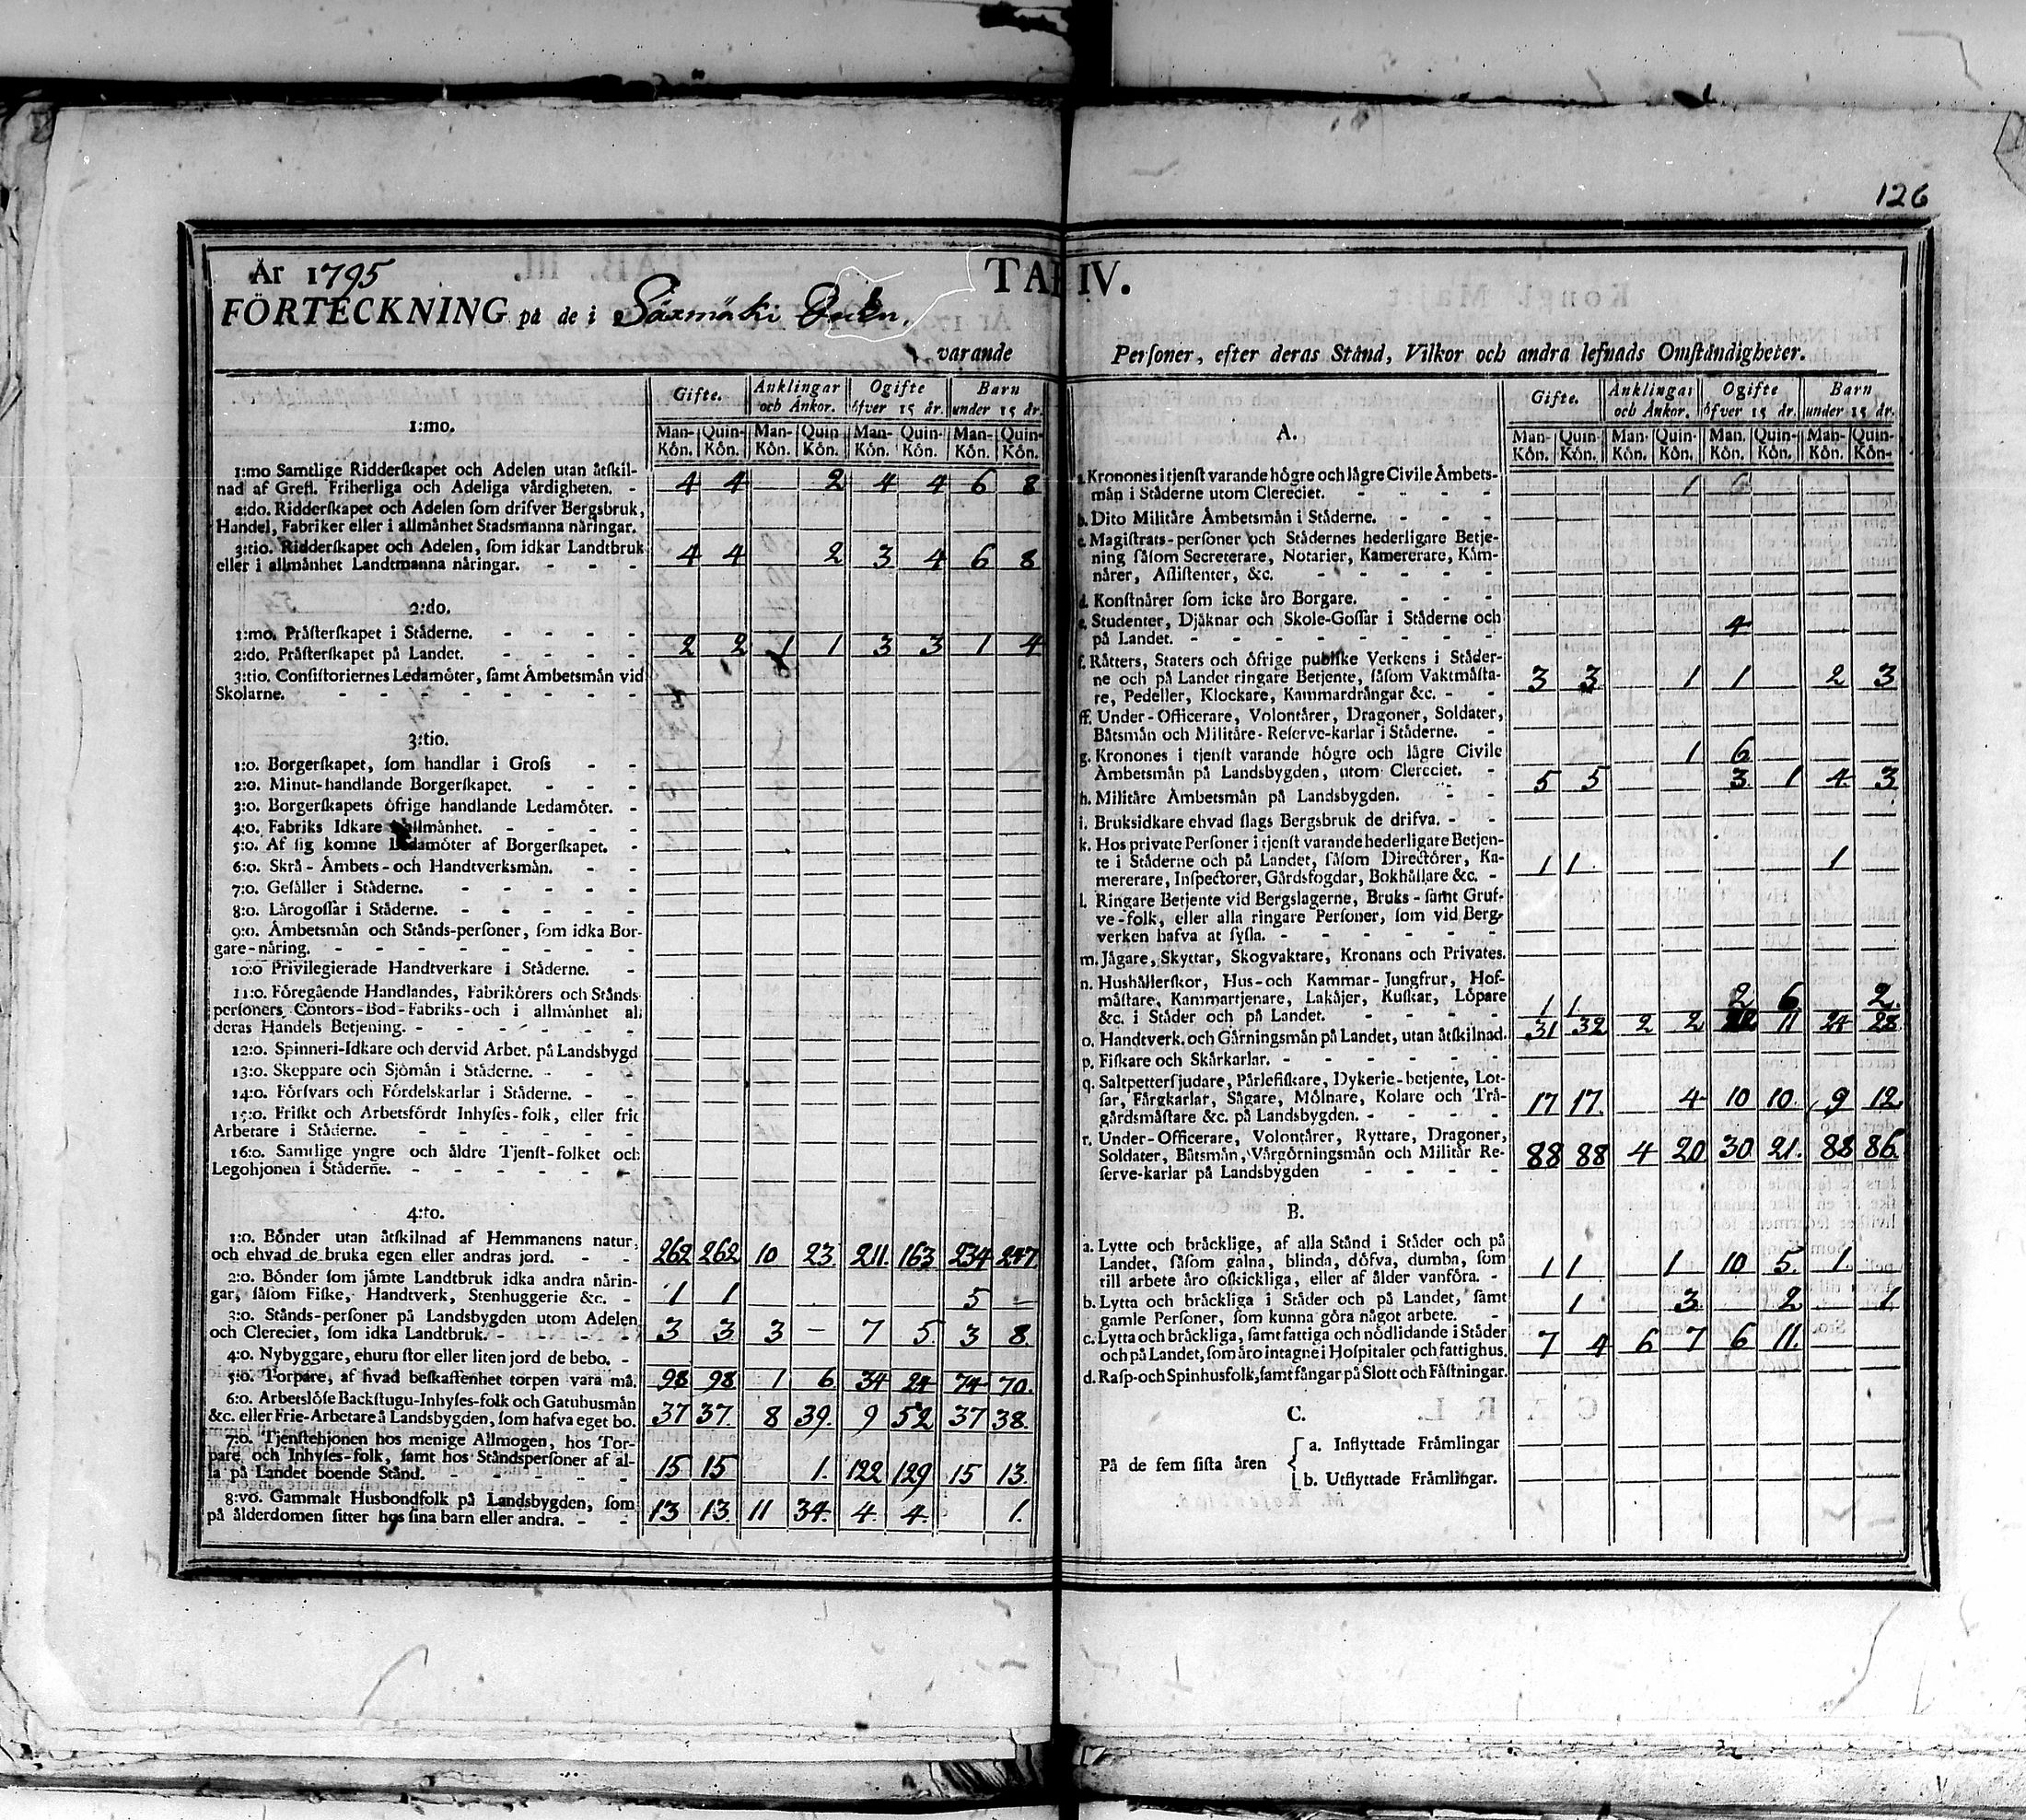 126
År 1795
TAB IV.
FÖRTECKNING på de i Säxmäki
varande Personer, efter deras Stånd, Vilkor och andra lefnads Omständigheter.
Gifte. Änklingar och Änkor. Ogifte öfver 15 år. Barn under 15 år.
Man-Kön. Quin-Kön. Man-Kön. Quin-Kön. Man-Kön. Quin-Kön. Man-Kön. Quin-Kön.
1:mo.
1:mo Samtlige Ridderskapet och Adelen utan åtskil-
nad af Grefl. Friherliga och Adeliga vårdigheten. - 4 4 2 4 4 6 8
2:do. Ridderskapet och Adelen som drifver Bergsbruk,
Handel, Fabriker eller i allmånhet Stadsmanna nåringar.
3:tio. Ridderskapet och Adelen, som idkar Landtbruk
eller i allmånhet Landtmanna nåringar. - - - 4 4 2 3 4 6 8
2:do.
1:mo. Pråsterskapet i Ståderne. - - - -
2:do. Pråsterskapet på Landet. - - - - 2 2 1 1 3 3 1 4
3:tio. Consistoriernes Ledamöter, samt Åmbetsmån vid
Skolarne. - - - - - - - -
3:tio.
1:o. Borgerskapet, som handlar i Gross - -
2:o. Minut-handlande Borgerskapet. - - -
3:o. Borgerskapets öfrige handlande Ledamöter. -
4:o. Fabriks Idkare i allmånhet. - - - -
5:o. Af sig komne Ledamöter af Borgerskapet. -
6:o. Skrå-Åmbets-och Handtverksmån. - -
7:o. Gesåller i Ståderne. - - - - -
8:o. Lårogossar i Ståderne. - - - - -
9:o. Åmbetsmån och Stånds-personer, som idka Bor-
gare-nåring. - - - - - - -
10:o Privilegierade Handtverkare i Ståderne. -
11:o. Föregående Handlandes, Fabrikörers och Stånds-
personers Contors-Bod-Fabriks-och i allmånhet all
deras Handels Betjening. - - - - - -
12:o. Spinneri-Idkare och dervid Arbet. på Landsbygd
13:o. Skeppare och Sjömån i Ståderne. - - -
14:o. Försvars och Fördelskarlar i Ståderne. - -
15:o. Friskt och Arbetsfördt Inhyses-folk, eller frie
Arbetare i Ståderne. - - - - - -
16:o. Samtlige yngre och åldre Tjenst-folket och
Legohjonen i Ståderne. - - - - - -
4:to.
1:o. Bönder utan åtskilnad af Hemmanens natur,
och ehvad de bruka egen eller andras jord. - - 262 262 10 23 211 163 234 247
2:o. Bönder som jåmte Landtbruk idka andra nårin-
gar, såsom Fiske, Handtverk, Stenhuggerie &c. - 1 1 5 -
3:o. Stånds-personer på Landsbygden utom Adelen
och Clereciet, som idka Landtbruk. - - - - 3 3 3 - 7 5 3 8
4:o. Nybyggare, ehuru stor eller liten jord de bebo. -
5:o. Torpare, af hvad beskaffenhet torpen vara må. 98 98 1 6 34 24 74 70.
6:o. Arbetslöse Backstugu-Inhyses-folk och Gatuhusmån
&c. eller Frie-Arbetare å Landsbygden, som hafva eget bo. 37 37. 8 39. 9 52 37 38.
7:o. Tjenstehjonen hos menige Allmogen, hos Tor-
pare och Inhyses-folk, samt hos Ståndspersoner af al-
la på Landet boende Stånd. - - - - - 15 15 1. 122 129 15 13.
8:vo. Gammalt Husbondfolk på Landsbygden, som
på ålderdomen sitter hos sina barn eller andra. - - 13 13. 11 34. 4. 4. 1.
Gifte. Änklingar och Änkor. Ogifte öfver 15 år. Barn under 15 år.
Man-Kön. Quin-Kön. Man-Kön. Quin-Kön. Man-Kön. Quin-Kön. Man-Kön. Quin-Kön.
A.
a. Kronones i tjenst varande högre och lågre Civile Åmbets-
mån i Ståderne utom Clereciet. - - - - 1 6
b. Dito Militåre Åmbetsmån i Ståderne. - - -
c. Magistrats-personer och Stådernes hederligare Betje-
ning såsom Secreterare, Notarier, Kamererare, Kåm-
nårer, Assistenter, &c. - - - - -
d. Konstnårer som icke åro Borgare. - - -
e. Studenter, Djåknar och Skole-Gossar i Ståderne och
på Landet. - - - - - - - 4
f. Råtters, Staters och öfrige publike Verkens i Ståder-
ne och på Landet ringare Betjente, såsom Vaktmåsta-
re, Pedeller, Klockare, Kammardrångar &c. - - 3 3 1 1 2 3
ff. Under-Officerare, Volontårer, Dragoner, Soldater,
Båtsmån och Militåre-Reserve-karlar i Ståderne. -
g. Kronones i tjenst varande högre och lågre Civile 1 6
Åmbetsmån på Landsbygden, utom Clereciet. -
h. Militåre Åmbetsmån på Landsbygden. - - 5 5 3 1 4 3
i. Bruksidkare ehvad slags Bergsbruk de drifva. - -
k. Hos private Personer i tjenst varande hederligare Betjen-
te i Ståderne och på Landet, såsom Directörer, Ka-
mererare, Inspectorer, Gårdsfogdar, Bokhållare &c. - 1 1 1
l. Ringare Betjente vid Bergslagerne, Bruks-samt Gruf-
ve-folk, eller alla ringare Personer, som vid Berg-
verken hafva at sysla. - - - - - -
m. Jågare, Skyttar, Skogvaktare, Kronans och Privates.
n. Hushållerskor, Hus-och Kammar-Jungfrur, Hof-
måstare, Kammartjenare, Lakåjer, Kuskar, Löpare
&c. i Ståder och på Landet. - - - - 1 1 2 6 2.
o. Handtverk. och Gårningsmån på Landet, utan åtskilnad. 31 32 2 2 11 24 28
p. Fiskare och Skårkarlar. - - - - - -
q. Saltpettersjudare, Pårlefiskare, Dykerie-betjente, Lot-
sar, Fårgkarlar, Sågare, Mölnare, Kolare och Trå-
gårdsmåstare &c. på Landsbygden. - - - - 17 17. 4 10 10. 9 12
r. Under-Officerare, Volontårer, Ryttare, Dragoner,
Soldater, Båtsmån, Vårgörningsmån och Militår Re-
serve-karlar på Landsbygden - - - - 88 88 4 20 30 21. 88 86.
B.
a. Lytte och bråcklige, af alla Stånd i Ståder och på
Landet, såsom galna, blinda, döfva, dumba, som
till arbete åro oskickliga, eller af ålder vanföra. - 1 1 1 10 5. 1.
b. Lytta och bråckliga i Ståder och på Landet, samt
gamle Personer, som kunna göra något arbete. - 1 3 2 1
c. Lytta och bråckliga, samt fattiga och nödlidande i Ståder
och på Landet, som åro intagne i Hospitaler och fattighus. 7 4 6 7 6 11.
d. Rasp-och Spinhusfolk, samt fångar på Slott och Fåstningar.
C.
På de fem sista åren
a. Inflyttade Fråmlingar
b. Utflyttade Fråmlingar.